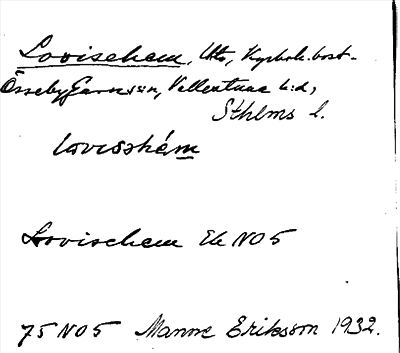 Lovischem, Uto, Kyrkok.bost.
Össeby Garnsn, Vallentuna h:d,
Sthlms l.
lovisshém
Lovischem Ek NO5
75 NO5 Manne Eriksson 1932.